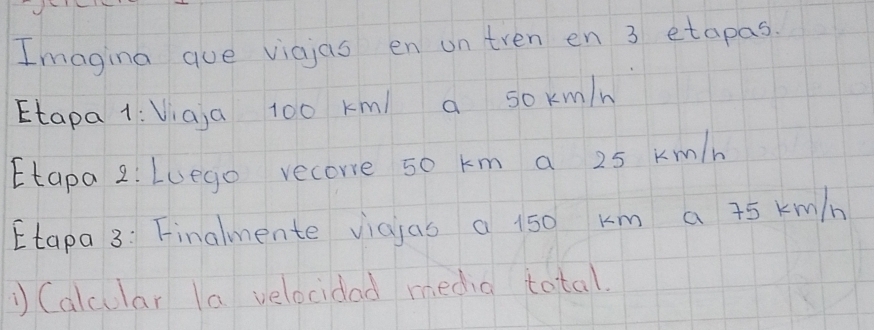 Imagina que viajas en un tren en 3 etapas.
Etapa 1: Viaja 100 km/ a 50 km/h
Etapa 2: Luego recorre 50 km a 25 km/h
Etapa 3: Finalmente viajas a 150 km a 75 km/h
1) Calcular la velocidad media total.